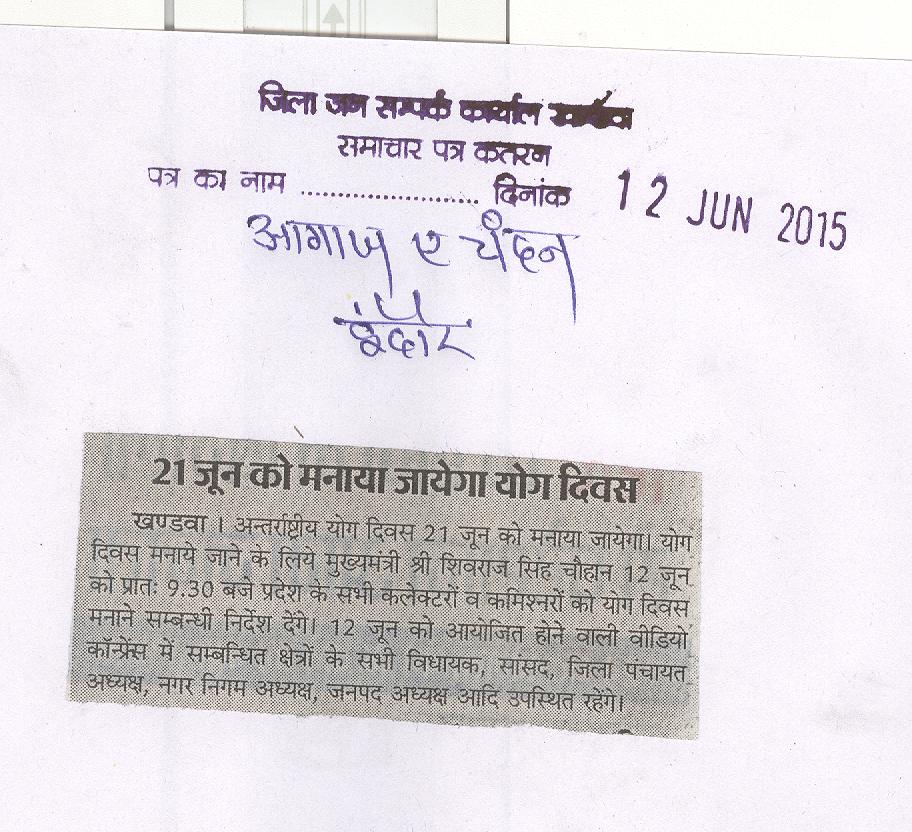 जिला जन सम्पर्क कार्याल खण्डवा
समाचार पत्र कतरन
पत्र का नाम ........................ दिनांक 12 JUN 2015
आगाज ए चंदन
इंदौर
21 जून को मनाया जायेगा योग दिवस
खण्डवा । अन्तर्राष्ट्रीय योग दिवस 21 जून को मनाया जायेगा। योग
दिवस मनाये जाने के लिये मुख्यमंत्री श्री शिवराज सिंह चौहान 12 जून
को प्रातः 9.30 बजे प्रदेश के सभी कलेक्टरों व कमिश्नरों को योग दिवस
मनाने सम्बन्धी निर्देश देंगे। 12 जून को आयोजित होने वाली वीडियो
कॉन्फ्रेंस में सम्बन्धित क्षेत्रों के सभी विधायक, सांसद, जिला पंचायत
अध्यक्ष, नगर निगम अध्यक्ष, जनपद अध्यक्ष आदि उपस्थित रहेंगे।